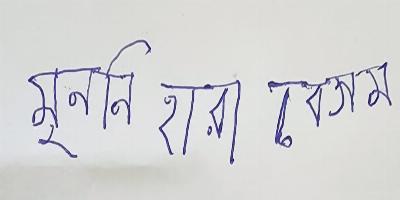 মুননি হারা বেগম